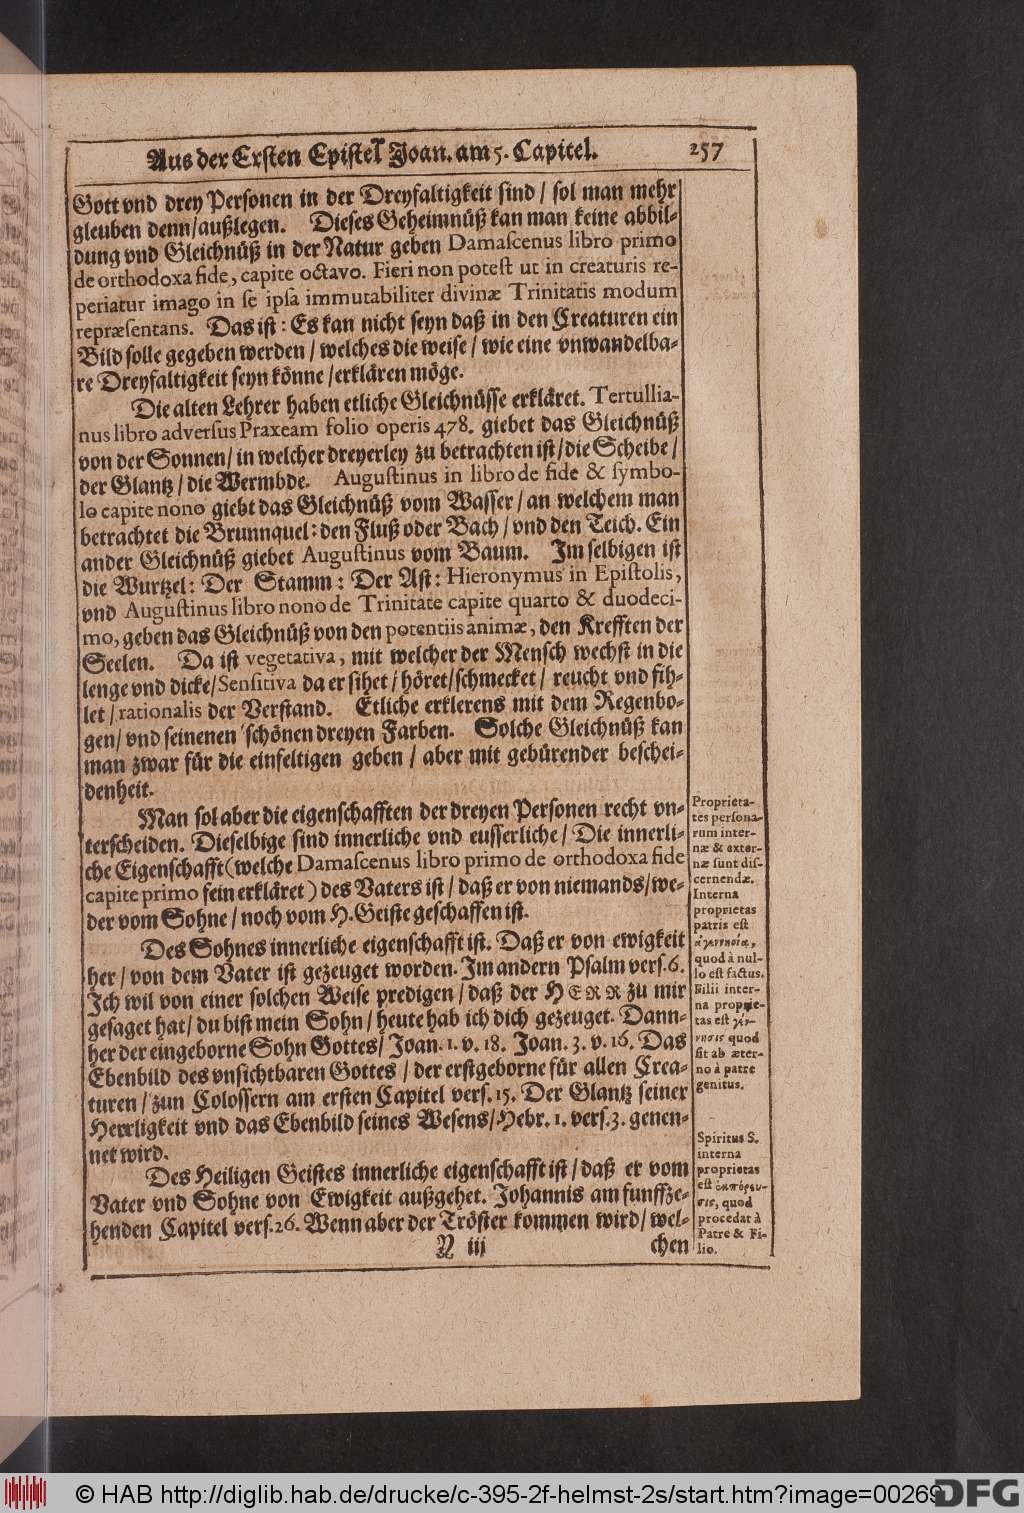 Aus der Ersten Epistel Joan. am 5. Capitel. 257
Gott vnd drey Personen in der Dreyfaltigkeit sind / sol man mehr
gleuben denn/außlegen. Dieses Geheimnüß kan man keine abbil-
dung vnd Gleichnüß in der Natur geben Damascenus libro primo
de orthodoxa fide, capite octavo. Fieri non potest ut in creaturis re-
periatur imago in se ipsa immutabiliter divinæ Trinitatis modum
repræsentans. Das ist: Es kan nicht seyn daß in den Creaturen ein
Bild solle gegeben werden / welches die weise / wie eine vnwandelba-
re Dreyfaltigkeit seyn könne /erklären möge.
Die alten Lehrer haben etliche Gleichnüsse erkläret. Tertullia-
nus libro adversus Praxeam folio operis 478. giebet das Gleichnüß
von der Sonnen/ in welcher dreyerley zu betrachten ist/die Scheibe/
der Glantz / die Wermbde. Augustinus in libro de fide & symbo-
lo capite nono giebt das Gleichnüß vom Wasser / an welchem man
betrachtet die Brunnquel: den Fluß oder Bach / vnd den Teich. Ein
ander Gleichnüß giebet Augustinus vom Baum. Im selbigen ist
die Wurtzel: Der Stamm: Der Ast: Hieronymus in Epistolis,
vnd Augustinus libro nono de Trinitate capite quarto & duodeci-
mo, geben das Gleichnüß von den potentiis animæ, den Krefften der
Seelen. Da ist vegetativa, mit welcher der Mensch wechst in die
lenge vnd dicke/Sensitiva da er sihet / höret/schmecket / reucht vnd füh-
let / rationalis der Verstand. Etliche erklerens mit dem Regenbo-
gen/ vnd seinenen schönen dreyen Farben. Solche Gleichnüß kan
man zwar für die einfeltigen geben / aber mit gebürender beschei-
denheit.
Man sol aber die eigenschafften der dreyen Personen recht vn-
terscheiden. Dieselbige sind innerliche vnd eusserliche/ Die innerli-
che Eigenschafft (welche Damascenus libro primo de orthodoxa fide
capite primo fein erkläret) des Vaters ist / daß er von niemands/we-
der vom Sohne / noch vom H. Geiste geschaffen ist.
Des Sohnes innerliche eigenschafft ist. Daß er von ewigkeit
her / von dem Vater ist gezeuget worden. Im andern Psalm vers. 6.
Ich wil von einer solchen Weise predigen / daß der HERR zu mir
gesaget hat / du bist mein Sohn / heute hab ich dich gezeuget. Dann-
her der eingeborne Sohn Gottes/ Joan. 1. v. 18. Joan. 3. v. 16. Das
Ebenbild des vnsichtbaren Gottes / der erstgeborne für allen Crea-
turen / zun Colossern am ersten Capitel vers. 15. Der Glantz seiner
Herrligkeit vnd das Ebenbild seines Wesens/Hebr. 1. vers. 3. genen-
net wird.
Des Heiligen Geistes innerliche eigenschafft ist / daß er vom
Vater vnd Sohne von Ewigkeit außgehet. Johannis am funffze-
henden Capitel vers. 26. Wenn aber der Tröster kommen wird/ wel-
iii chen
Proprieta-
tes persona-
rum inter-
næ & exter-
næ sunt dis-
cernendæ.
Interna
proprietas
patris est
ἀγεννησία,
quod à nul-
lo est factus.
Filii inter-
na proprie-
tas est γέν-
νησις quod
sit ab æter-
no à patre
genitus.
Spiritus S.
interna
proprietas
est ἐκπόρευ-
σις, quod
procedat à
Patre & Fi-
lio.
© HAB http://diglib.hab.de/drucke/c-395-2f-helmst-2s/start.htm?image=00269
DFG